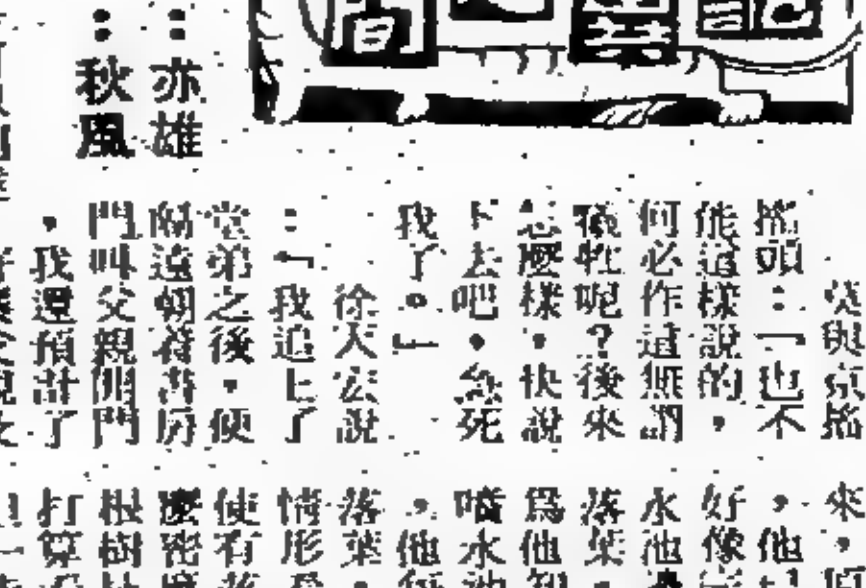 ：亦雄
：秋風
與京搖
搖頭：「也不
能這樣說的，
何必作這無謂
犧牲呢？後來
怎麼樣，快說
下去吧，急死
我了。」
徐天宏說
：「我追上了
堂弟之後，便
隔遠朝着書房
門叫父親開門
，我還預計了
來，
，他
好像
水他
落葉，
爲他
噴水池
，他
落葉，
情形
使有
麼密
根樹
打算